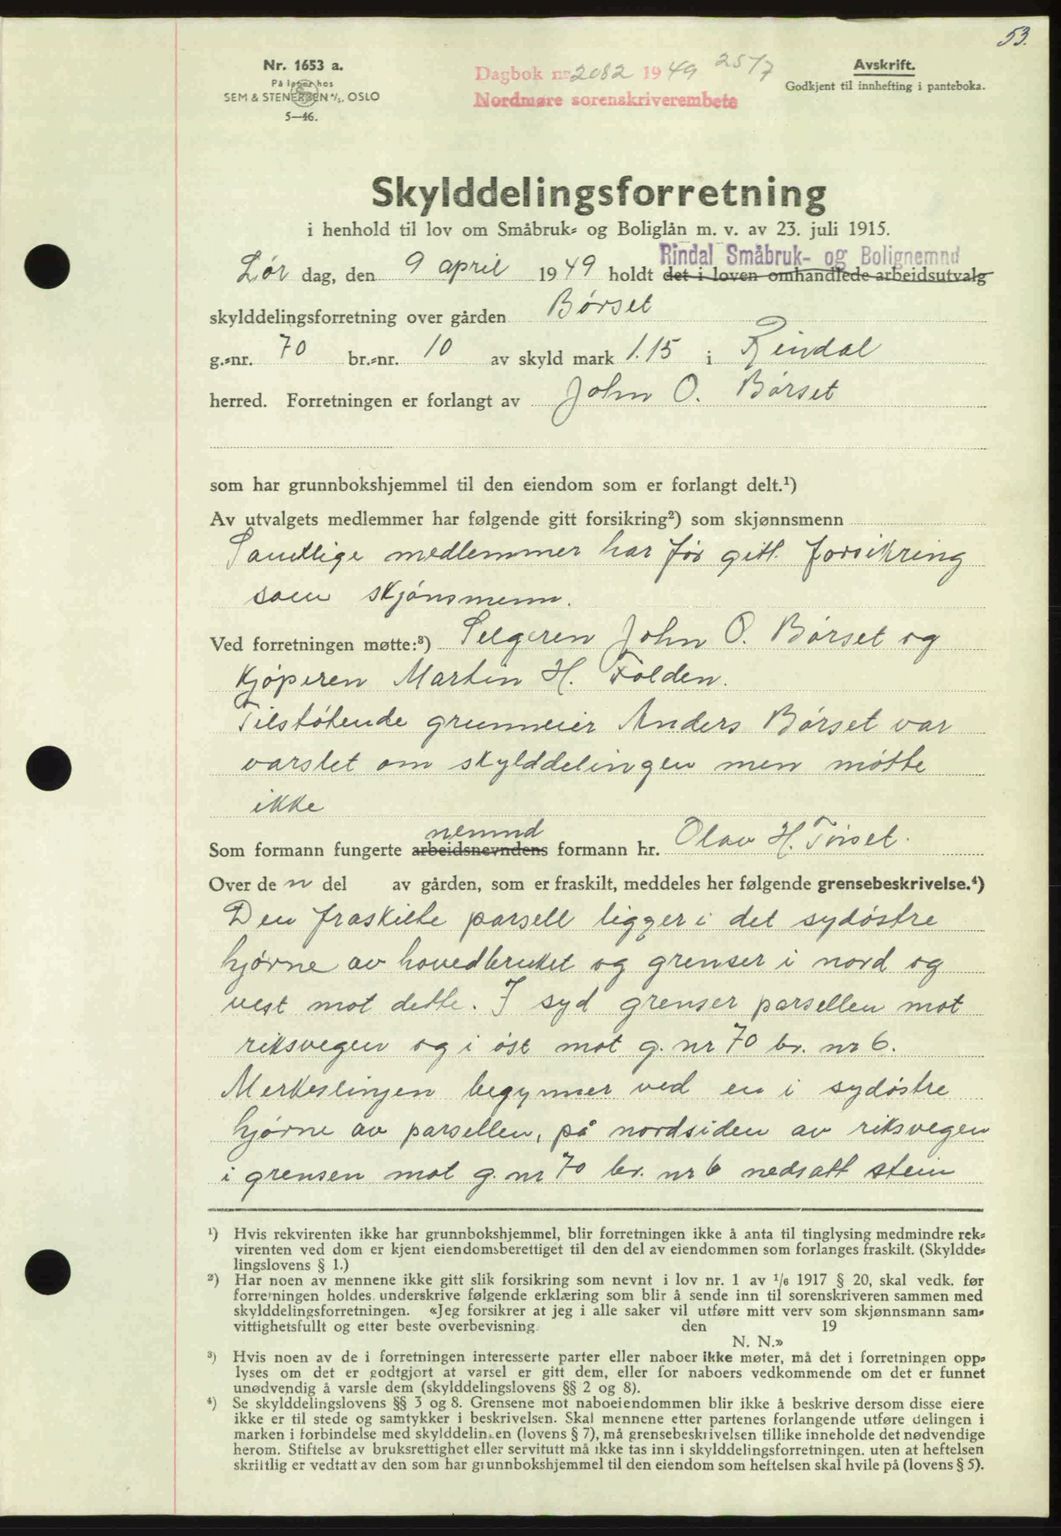 53.
Nr. 1653 a.
På lager hos
SEM & STENERSEN A/S. OSLO
5—46.
Dagbok nr 2082 1949 25/7
Nordmøre sorenskriverembete
Avskrift.
Godkjent til innhefting i panteboka.
Skylddelingsforretning
i henhold til lov om Småbruk- og Boliglån m. v. av 23. juli 1915.
Rindal Småbruk- og Bolignemnd
Lør dag, den 9 april 1949 holdt det i loven omhandlede arbeidsutvalg
skylddelingsforretning over gården Børset
g.-nr. 70 br.-nr. 10 av skyld mark 1.15 i Rindal
herred. Forretningen er forlangt av John O. Børset
som har grunnbokshjemmel til den eiendom som er forlangt delt.¹)
Av utvalgets medlemmer har følgende gitt forsikring²) som skjønnsmenn
Samtlige medlemmer har før gitt forsikring
som skjønsmenn.
Ved forretningen møtte:³) Selgeren John O. Børset og
kjøperen Martin H. Folden.
Tilstøtende grunneier Anders Børset var
varslet om skylddelingen men møtte
ikke
nemnd
Som formann fungerte arbeidsnevndens formann hr. Olav H. Tørset.
Over de n del av gården, som er fraskilt, meddeles her følgende grensebeskrivelse.⁴)
Den fraskilte parsell ligger i det sydøstre
hjørne av hovedbruket og grenser i nord og
vest mot dette. I syd grenser parsellen mot
riksvegen og i øst mot g. nr 70 br. nr 6.
Merkeslinjen begynner ved en i sydøstre
hjørne av parsellen, på nordsiden av riksvegen
i grensen mot g. nr 70 br. nr 6 nedsatt stein
¹) Hvis rekvirenten ikke har grunnbokshjemmel, blir forretningen ikke å anta til tinglysing medmindre rek-
virenten ved dom er kjent eiendomsberettiget til den del av eiendommen som forlanges fraskilt. (Skyldde-
lingslovens § 1.)
²) Har noen av mennene ikke gitt slik forsikring som nevnt i lov nr. 1 av ¹/₆ 1917 § 20, skal vedk. før
forretningen holdes underskrive følgende erklæring som blir å sende inn til sorenskriveren sammen med
skylddelingsforretningen. «Jeg forsikrer at jeg i alle saker vil utføre mitt verv som skjønnsmann sam-
vittighetsfullt og etter beste overbevisning. den 19
N. N.»
³) Hvis noen av de i forretningen interesserte parter eller naboer ikke møter, må det i forretningen opp-
lyses om det er godtgjort at varsel er gitt dem, eller for naboers vedkommende om det er funnet
unødvendig å varsle dem (skylddelingslovens §§ 2 og 8).
⁴) Se skylddelingslovens §§ 3 og 8. Grensene mot naboeiendommen blir ikke å beskrive dersom disse eiere
ikke er til stede og samtykker i beskrivelsen. Skal mennene etter partenes forlangende utføre delingen i
marken i forbindelse med skylddelingen (lovens § 7), må grensebeskrivelsen tillike inneholde det nødvendige
herom. Stiftelse av bruksrettighet eller servitutt må ikke tas inn i skylddelingsforretningen. uten at heftelsen
skriftlig er vedtatt av den som har grunnbokshjemmel til den eiendom som heftelsen skal hvile på (lovens § 5).